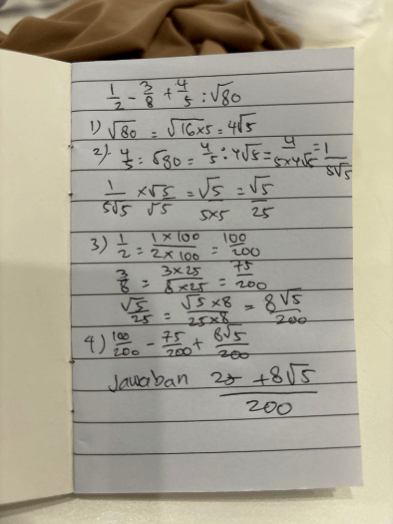 1/2 - 3/8 + 4/5 : √80
1) √80 = √16×5 = 4√5
2). 4/5 : √80 = 4/5 : 4√5 = 4/5×4√5 = 1/5√5
1/5√5 × √5/√5 = √5/5×5 = √5/25
3) 1/2 = 1×100/2×100 = 100/200
3/8 = 3×25/8×25 = 75/200
√5/25 = √5×8/25×8 = 8√5/200
4) 100/200 - 75/200 + 8√5/200
Jawaban 25 + 8√5/200